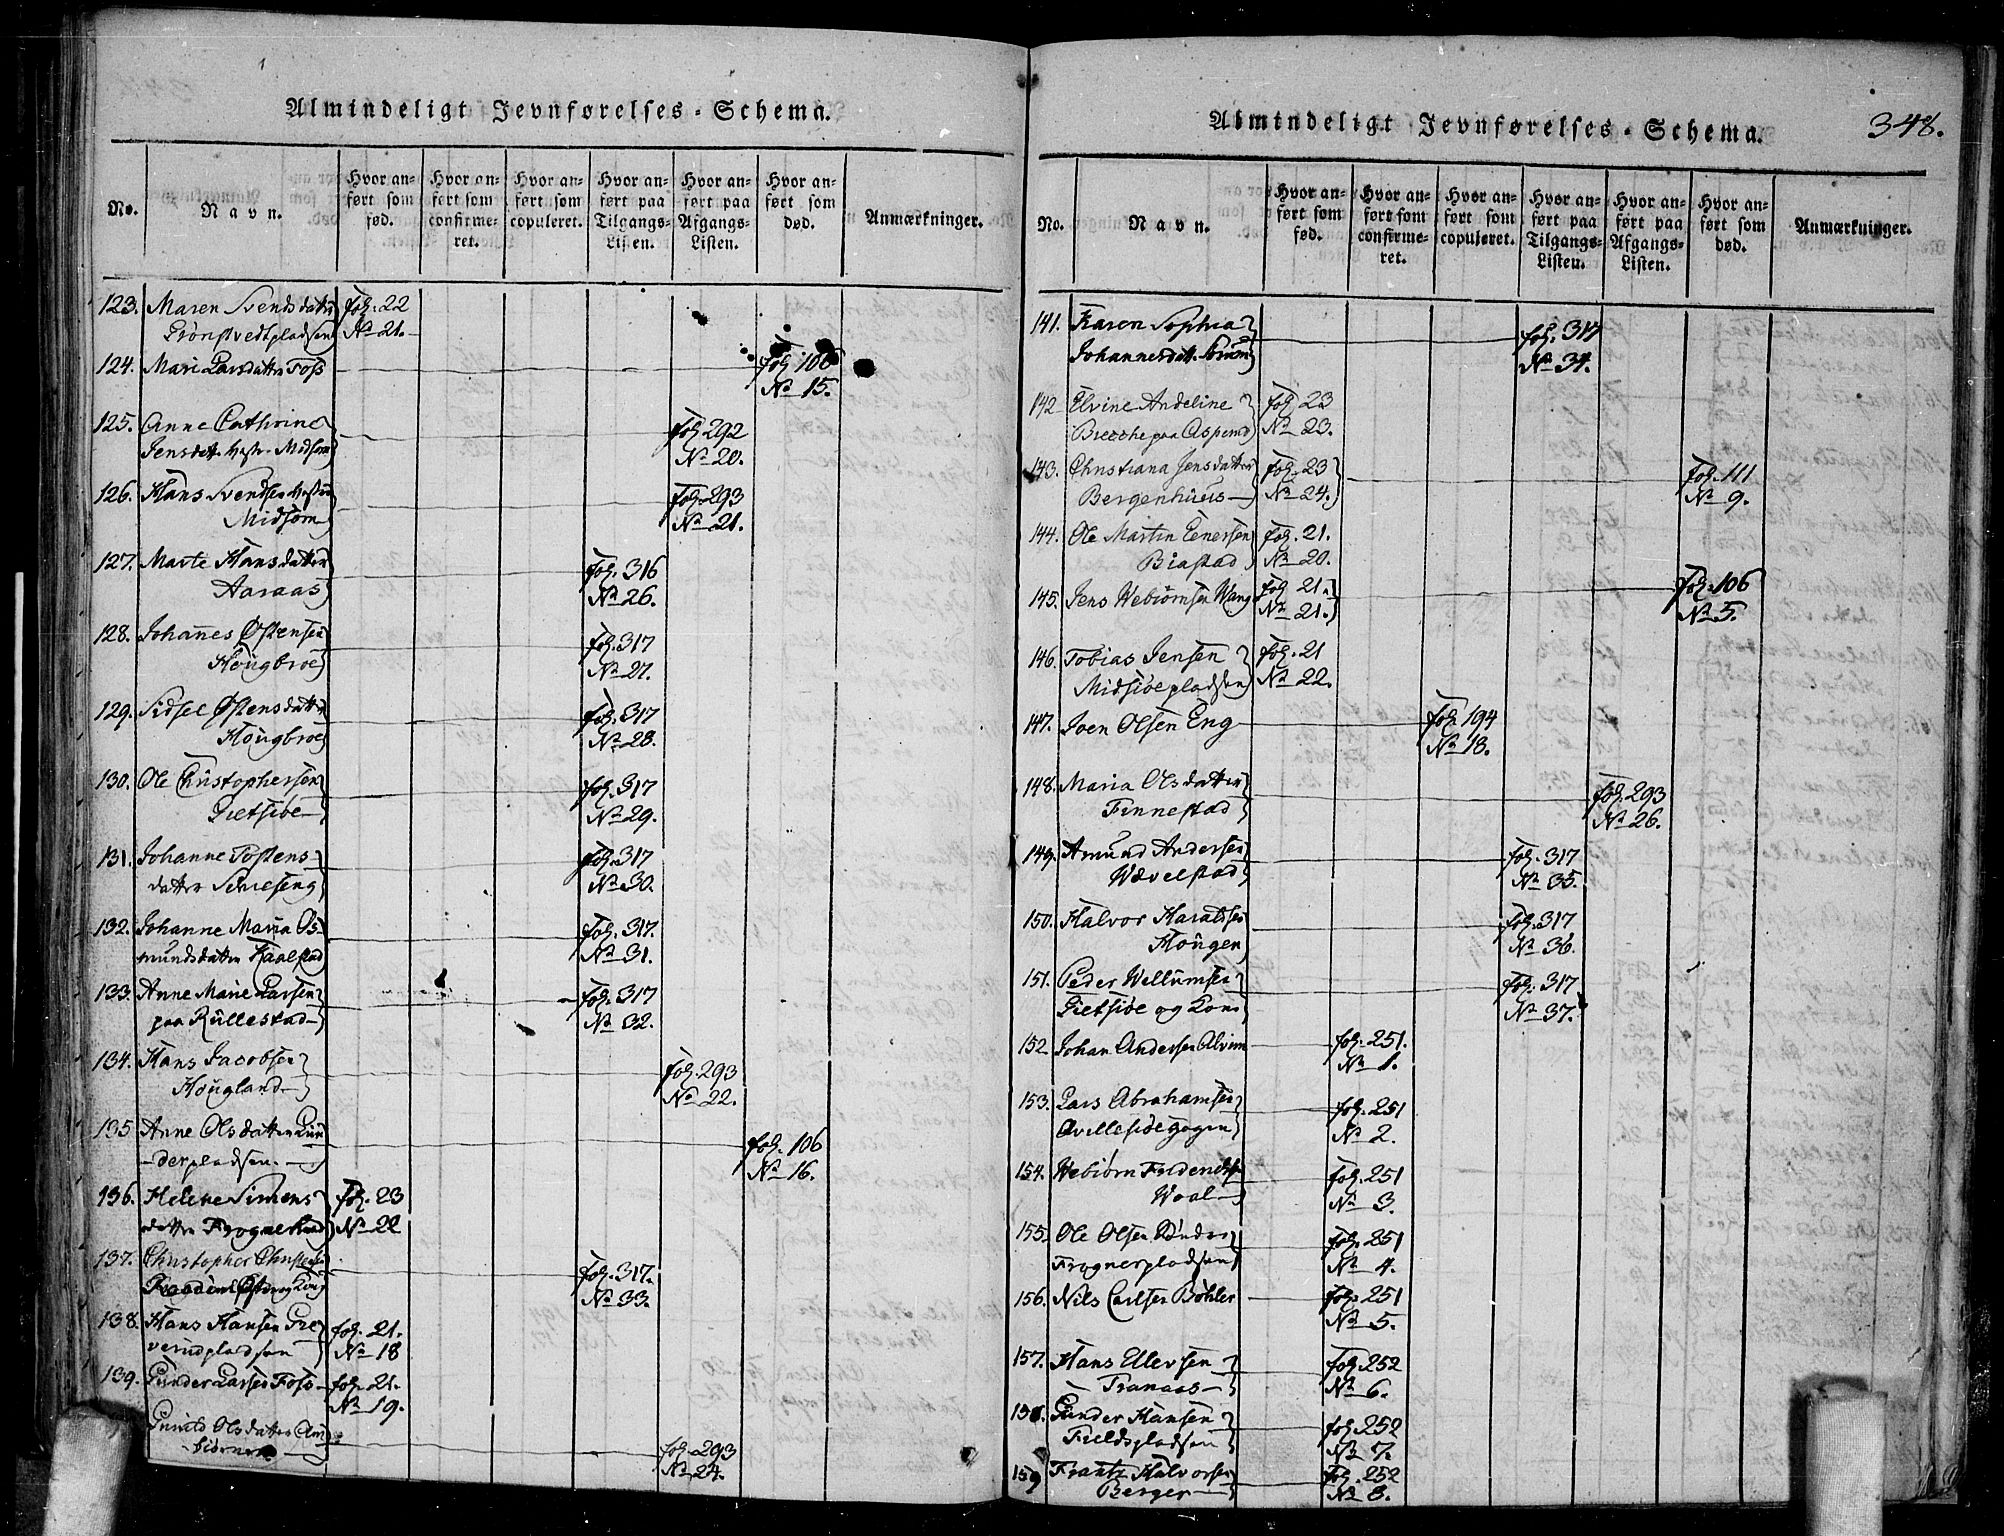 Almindeligt Jevnførelses-Schema.
No.
Navn.
Hvor an-
ført som
fød.
Hvor an-
ført som
confirme-
ret.
Hvor an-
ført som
copuleret.
Hvor an-
ført paa
Tilgangs-
Listen.
Hvor an-
ført paa
Afgangs-
Listen.
Hvor an-
ført som
død.
Anmærkninger.
123. Maren Svendsdatter fol. 22
Grønstvedtpladsen No 21.
124. Mari Larsdatter Foss fol 106
No 15.
125. Anne Cathrine fol 292
Jensdatt. Midsom No 20.
126. Hans Svendsen fol. 293
Midsom No 21.
127. Marte Hansdatter fol. 316
Aaraas No 26.
128. Johannes Østensen fol. 317
Hougbroe No 27.
129. Sidsel Østensdatter fol. 317
Hougbroe No 28.
130. Ole Christophersen fol. 317
Gietsiøe No 29.
131. Johanne Tostens fol. 317
datter No 30.
132. Johanne Maria Os- fol. 317.
mundsdatter Kaalstad No 31.
133. Anne Marie Larsen fol. 317
paa Rullestad No 32.
134. Hans Jacobsen fol. 293
Hougland No 22.
135 Anne Olsdatter Lun fol. 106
derpladsen. No 16.
136. Helene Simens fol. 23
datter Frognestad No 22
137. Christopher fol. 317.
No 33.
138. Hans Hansen Gre fol. 21.
verudpladsen No 18
139. Gunder Larsen Foss fol. 21.
No 19.
Gunild Olsdatter fol. 293
No 24.
Almindeligt Jevnførelses-Schema.
348.
No.
Navn.
Hvor an-
ført som
fød.
Hvor an-
ført som
confirme-
ret.
Hvor an-
ført som
copuleret.
Hvor an-
ført paa
Tilgangs-
Listen.
Hvor an-
ført paa
Afgangs-
Listen.
Hvor an-
ført som
død.
Anmærkninger.
141. Karen Sophia fol. 317
Johannesdatt. No 34.
142 Elvine Andeline fol 23
paa No 23.
143. Christiana Jensdatter fol. 23 fol. 111
Bergenhuus No 24. No 9.
144. Ole Martin Eenersen fol. 21.
Biastad No 20.
145. Jens Webiørnsen Wang fol 21. fol. 106
No 21. No 5.
146. Tobias Jensen fol. 21
Midsiøepladsen No 22.
147. Joen Olsen Eng fol 194
No 18.
148. Maria Olsdatter fol. 293
Finnestad No 26.
149. Amund Andersen fol. 317
Wævelstad No 35.
150. Halvor Haraldsen fol. 317
Hougen No 36.
151. Peder Wellumsen fol. 317
Gietsiøe og Kone No 37.
152 Johan Andersen Alvim fol. 251.
No 1.
153. Lars Abrahamsen fol. 251
No 2.
154. Webiørn fol. 251
Waal No 3.
155. Ole Olsen fol. 251
Frognerpladsen No 4.
156. Nils Carlsen Bøhler fol. 251
No 5.
157. Hans Ellevsen fol. 252
Tranaas No 6.
158. Gunder Hansen fol. 252
Fieldspladsen No 7.
159 Frantz Halvorsen fol. 252
Berger No 8.